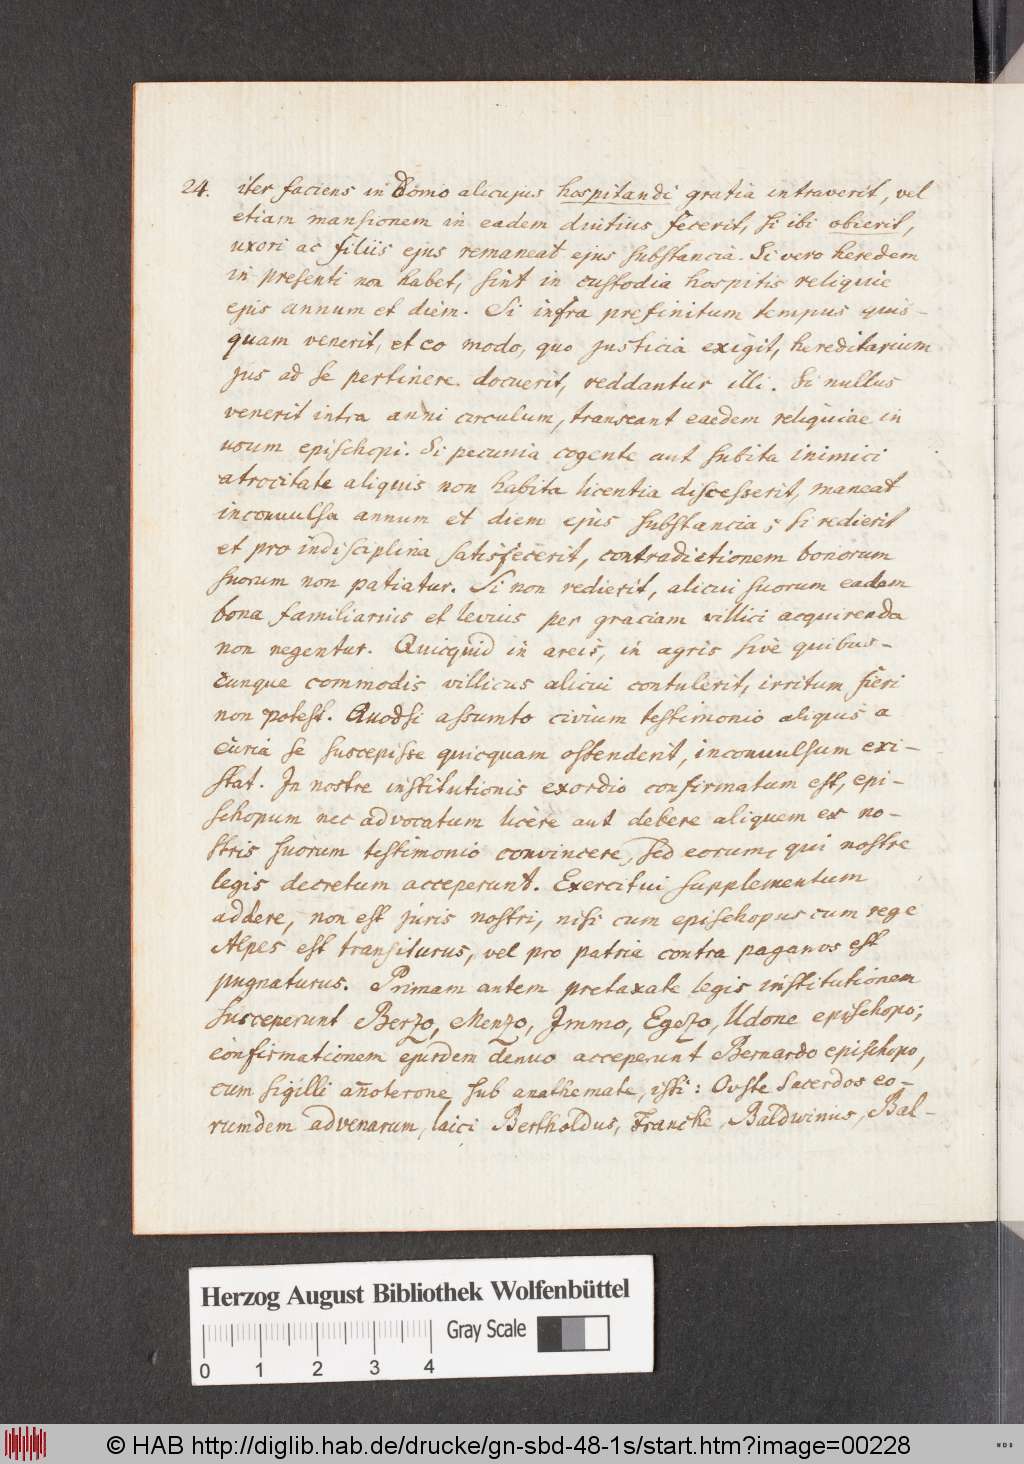 24. iter faciens in Domo alicujus hospitandi gratia intraverit, vel
etiam mansionem in eadem diutius fecerit, si ibi obierit,
uxori ac filiis ejus remaneat ejus substancia. Si vero heredem
in presenti non habet, sint in custodia hospitis reliquie
ejus annum et diem. Si infra prefinitum tempus quis-
quam venerit, et eo modo, quo justicia exigit, hereditarium
jus ad se pertinere docuerit, reddantur illi. Si nullus
venerit intra anni circulum, transeant eaedem reliquiae in
usum epischopi. Si pecunia cogente aut subita inimici
atrocitate aliquis non habita licentia discesserit, maneat
inconvulsa annum et diem ejus substancia; si redierit
et pro indisciplina satisfecerit, contradictionem bonorum
suorum non patiatur. Si non redierit, alicui suorum eadem
bona familiarius et levius per graciam villici acquirenda
non negentur. Quicquid in areis, in agris sive quibus-
cunque commodis villicus alicui contulerit, irritum fieri
non potest. Quodsi assumto civium testimonio aliquis a
curia se suscepisse quicquam ostenderit, inconvulsum exi-
stat. In nostre institutionis exordio confirmatum est, epi-
schopum nec advocatum licere aut debere aliquem ex no-
stris suorum testimonio convincere, sed eorum, qui nostre
legis decretum acceperunt. Exercitui supplementum
addere, non est juris nostri, nisi cum epischopus cum rege
Alpes est transiturus, vel pro patria contra paganos est
pugnaturus. Primam autem pretaxate legis institutionem
susceperunt Berzo, Menzo, Immo, Egezo, Udone epischopo;
confirmationem ejusdem denuo acceperunt Bernardo epischopo,
cum sigilli añoterone sub anathemate, isti: Ovste Sacerdos eo-
rumdem advenarum, laici Bertholdus, Francke, Baldwinus, Bal-
Herzog August Bibliothek Wolfenbüttel
Gray Scale
0 1 2 3 4
© HAB http://diglib.hab.de/drucke/gn-sbd-48-1s/start.htm?image=00228